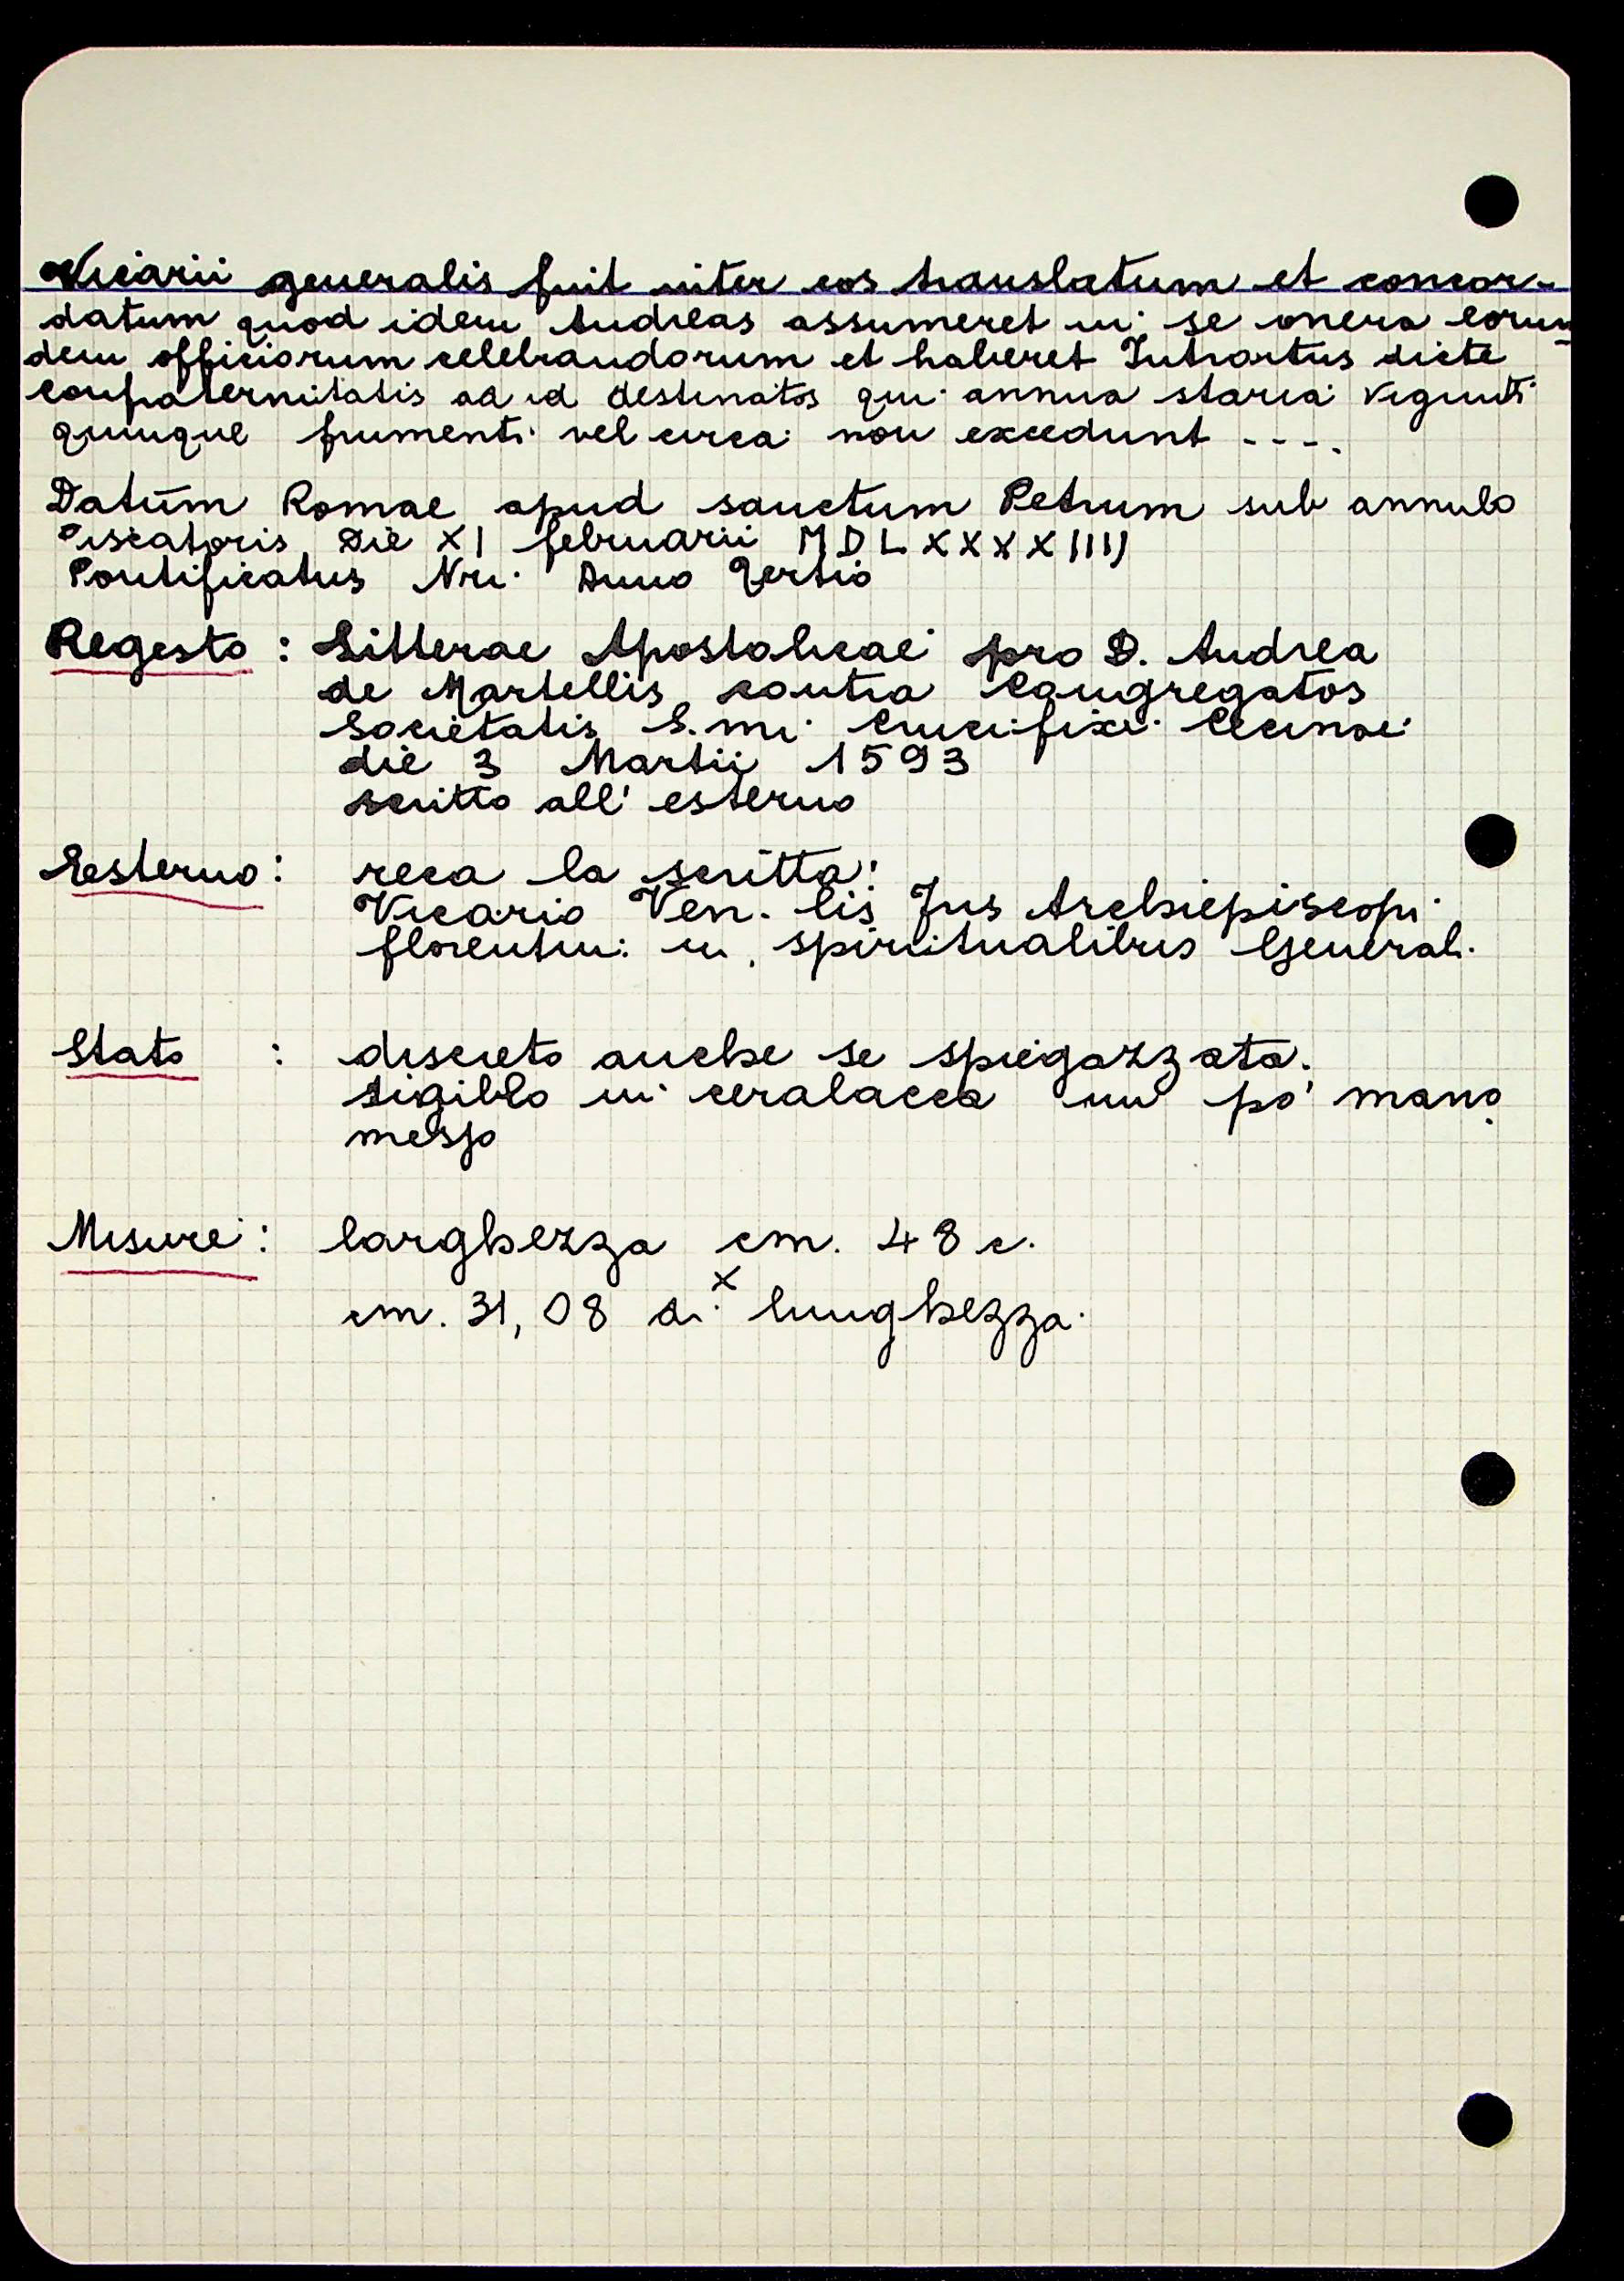 Vicarii generalis fuit inter eos translatum et concor-
datum quod idem Andreas assumeret in se onera eorun=
dem officiorum celebrandorum et haberet Introitus dicte
confraternitatis ad id destinatos qui annua staria viginti
quinque frumenti vel circa non excedunt ----
Datum Romae apud sanctum Petrum sub annulo
Piscatoris Die XI februarii MDLXXXXIIII
Pontificatus Nri Anno Tertio
Regesto : Litterae Apostolicae pro D. Andrea
de Martellis contra Congregatos
Societatis S.mi Crucifixi
die 3 Martii 1593
scritto all' esterno
Esterno : reca la scritta:
Vicario Ven. lis Archiepiscopi
florentin: in spiritualibus General.
Stato : discreto anche se spiegazzata.
sigillo in ceralacca un po' mano
messo
Misure : larghezza cm. 48 c.
x
cm. 31,08 di lunghezza.